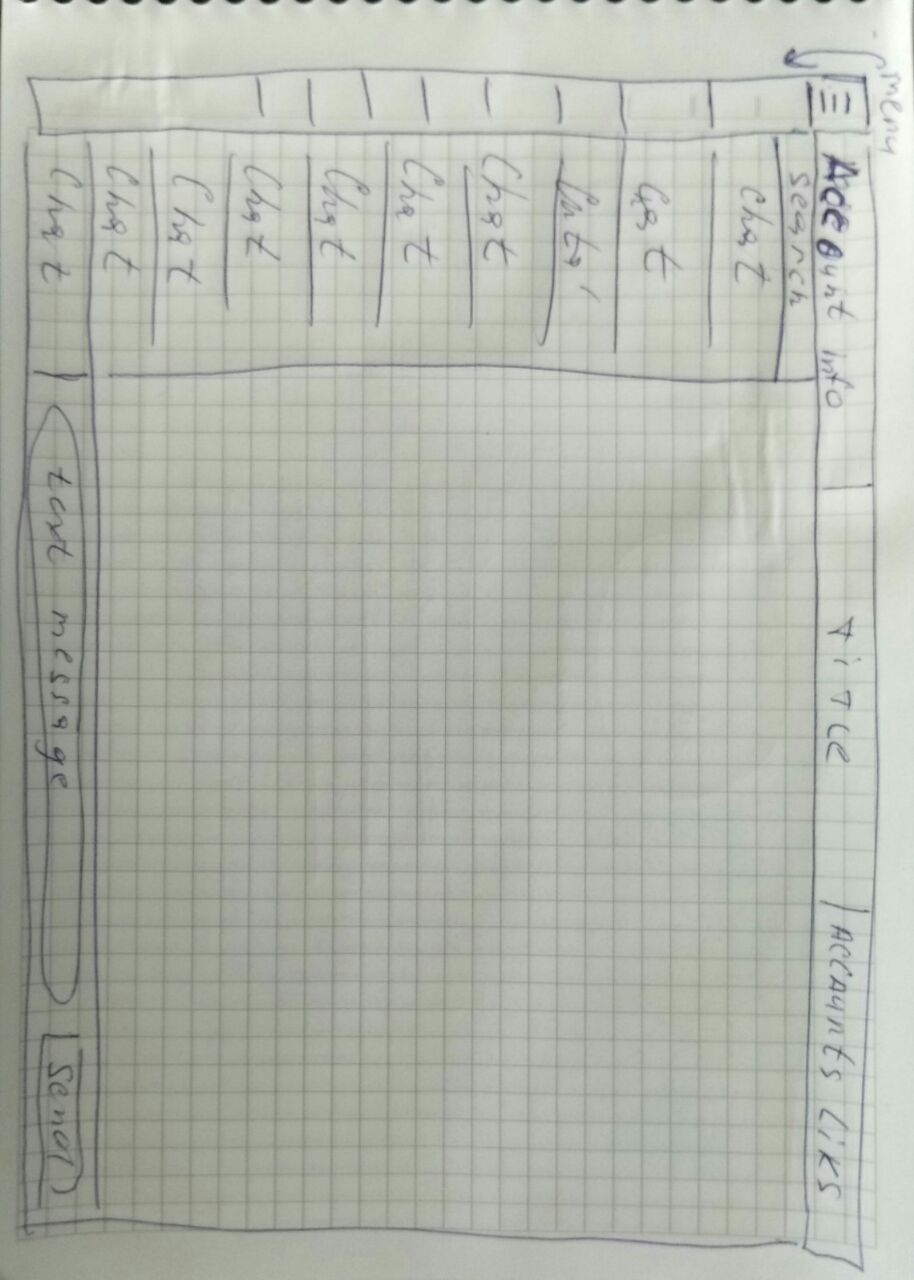 menu
Account info TiTLE ACCAunts LiKS
search
Chat
Chat
Chat
Chat
Chat
Chat
Chat
Chat
Chat text message Send